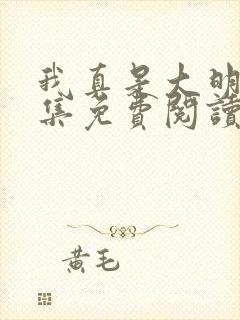 我真是大明
集免费閱讀
黄毛